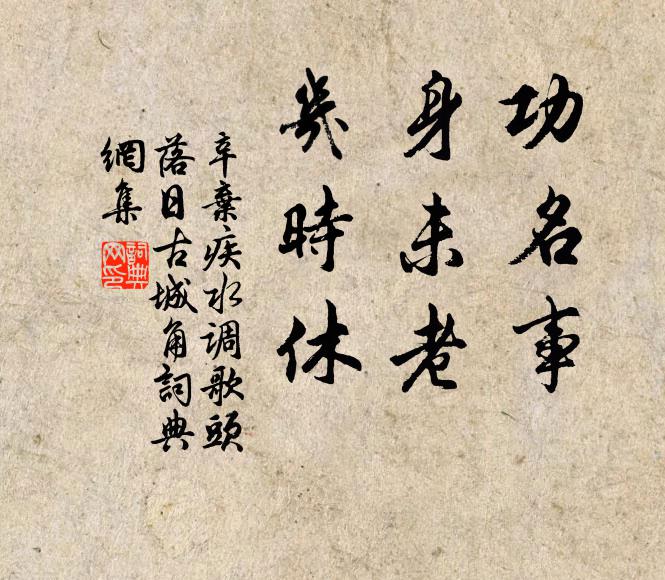 功名事
身未老
幾時休
辛棄疾水調歌頭
落日古城角詞典
網集
詞典
网印